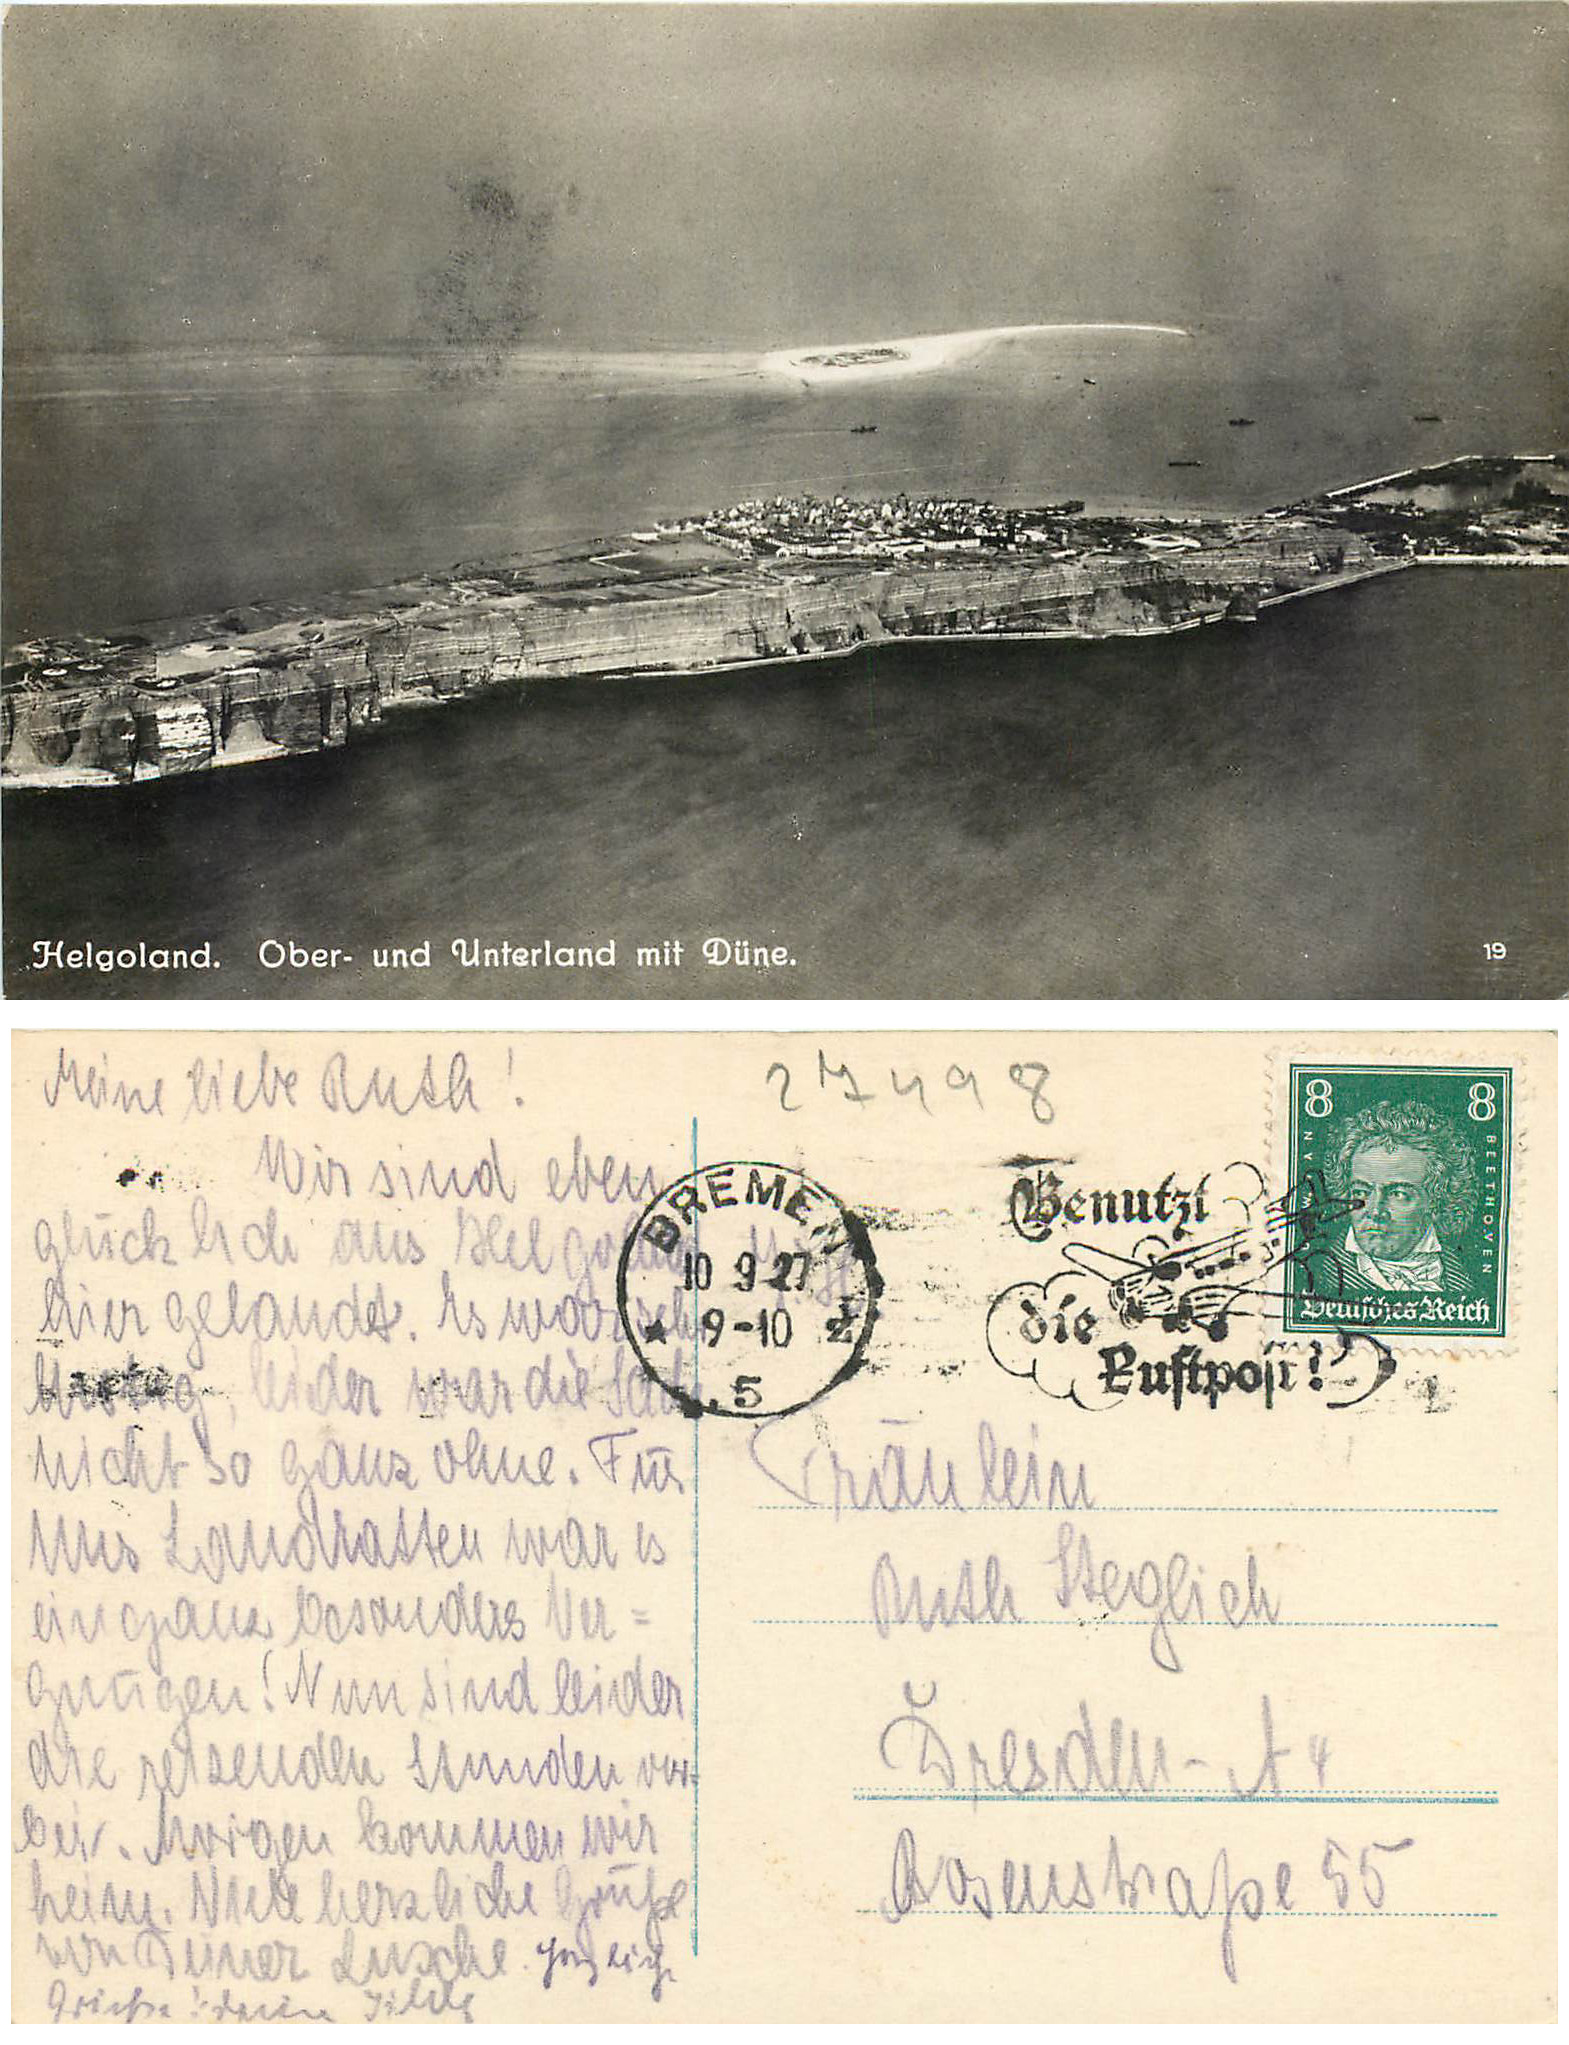 Helgoland. Ober- und Unterland mit Düne.
19
Meine liebe Ruth!
Wir sind eben
glücklich aus Helgoland
hier gelandet. Es war sehr
lustig, leider war die See
nicht so ganz ohne. Für
uns Landratten war es
ein ganz besonders Ver=
gnügen! Nun sind leider
die reizenden Stunden vor-
bei. Morgen kommen wir
heim. Viele herzliche Grüße
von Deiner Lusche. Herzliche
Grüße! Deine Hilde
27498
BREMEN
10 9 27
9-10
5
Benutzt
die
Luftpost!
8 8
L. VAN BEETHOVEN
Deutsches Reich
Fräulein
Ruth Steglich
Dresden-A 4
Rosenstraße 55